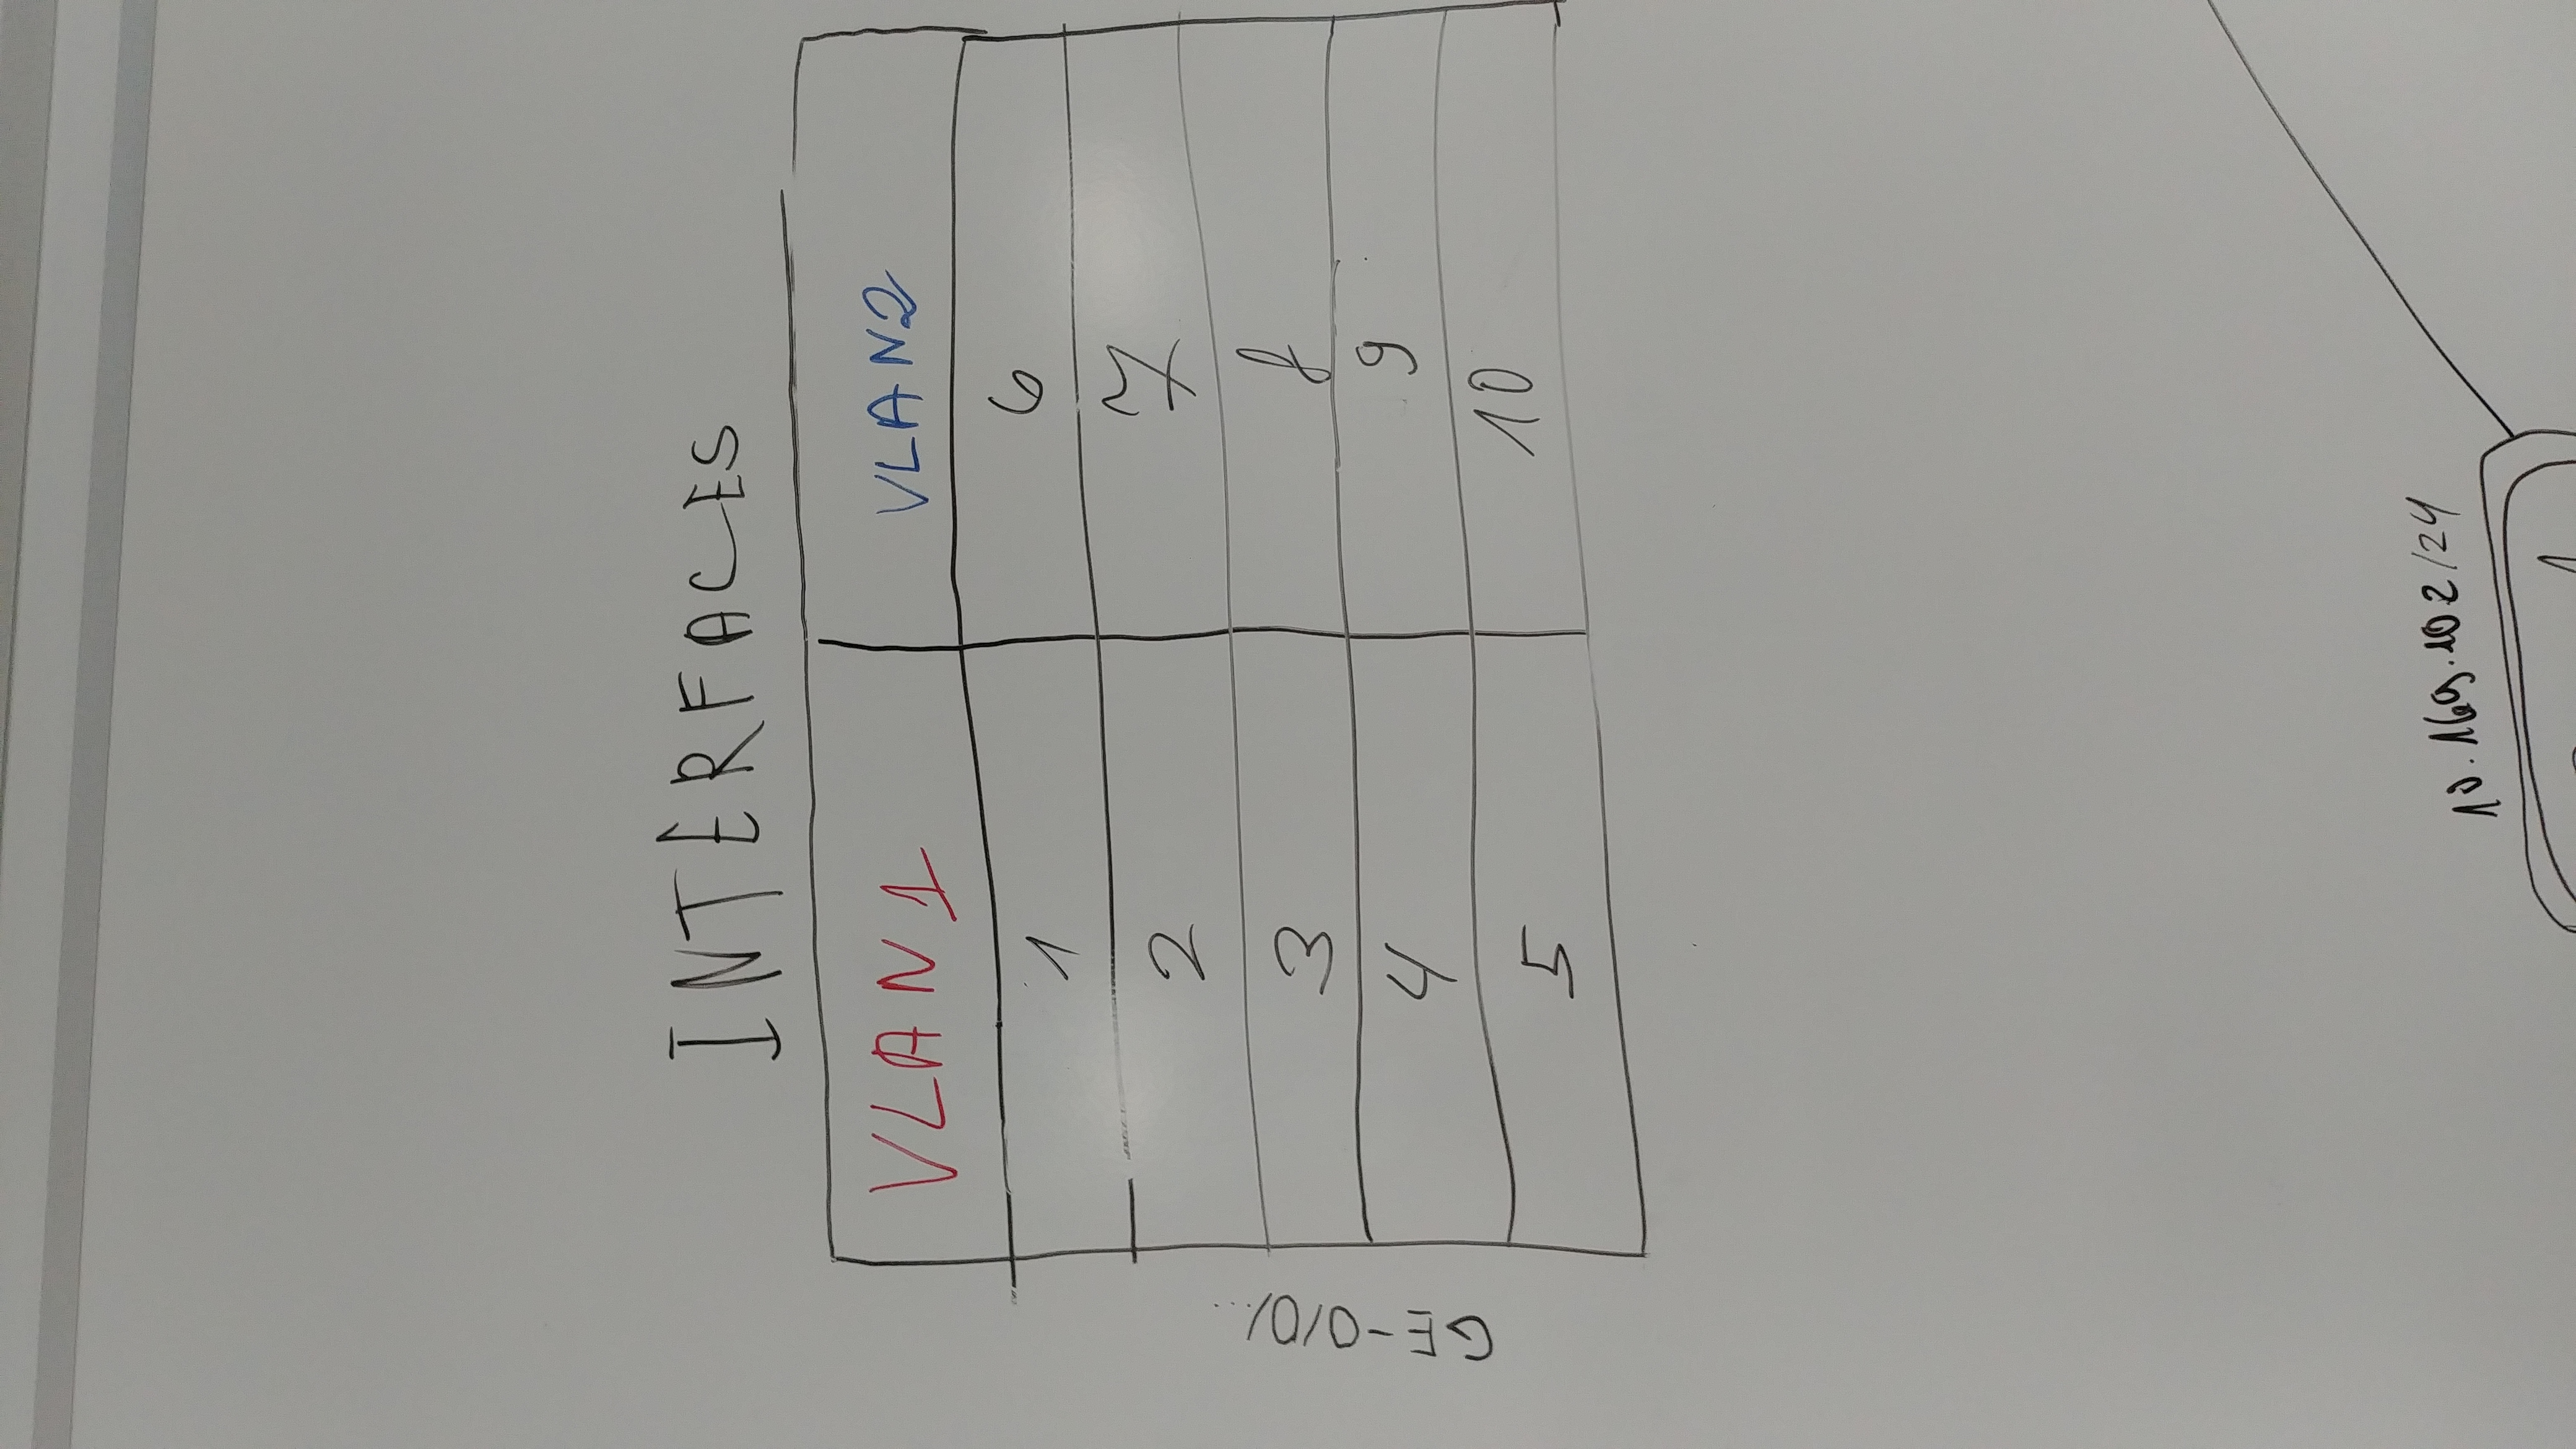 INTERFACES
VLAN1 VLAN2
1 6
2 7
3 8
4 9
5 10
GE-0/0/...
10.169.102/24